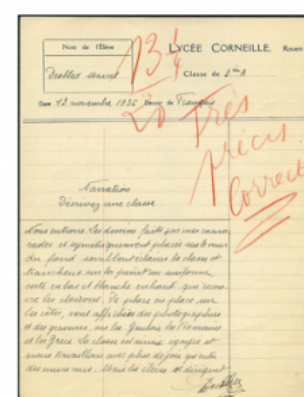 Nom de l'Élève
LYCÉE CORNEILLE. Rouen
13 1/4
20
Classe de
Date 13 novembre 1936 Devoir de Français
Très
précis
Correct
Narration
Décrivez une classe
Nous entrons. Les dessins faits par mes cama-
rades et symétriquement placés sur le mur
du fond semblent éclairer la classe et
tranchent sur la peinture uniforme,
verte en bas et blanche en haut qui recou-
vre les cloisons. De place en place, sur
les côtés, sont affichées des photographies
et des gravures, où les Gaulois, les Romains
et les Grecs. La classe est mieux égayée et
nous travaillons avec plus de joie qu'entre
des murs nus. Mais les élèves se dirigent